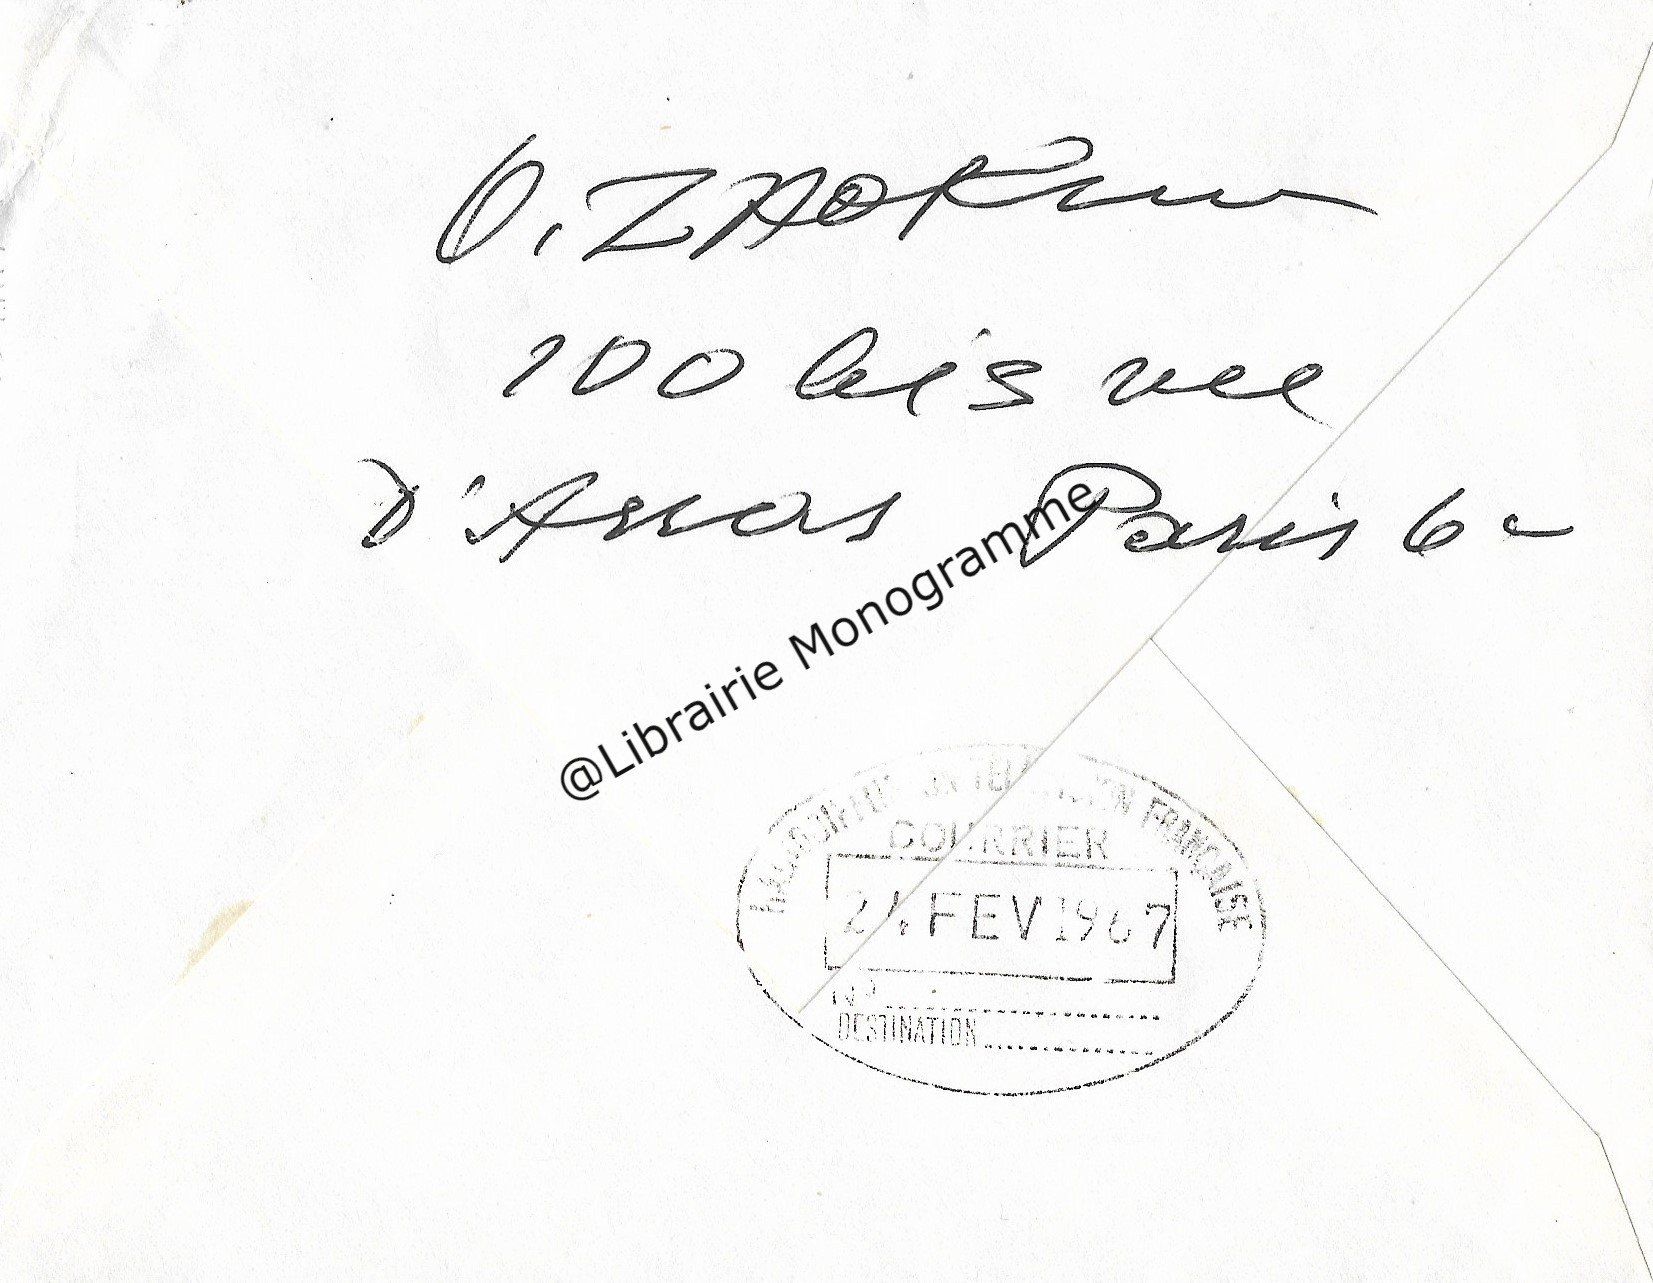 O. ZADKINE
100 bis rue
D'Assas Paris 6e
@Librairie Monogramme
RADIODIFFUSION TELEVISION FRANÇAISE
COURRIER
24 FEV 1967
N°
DESTINATION